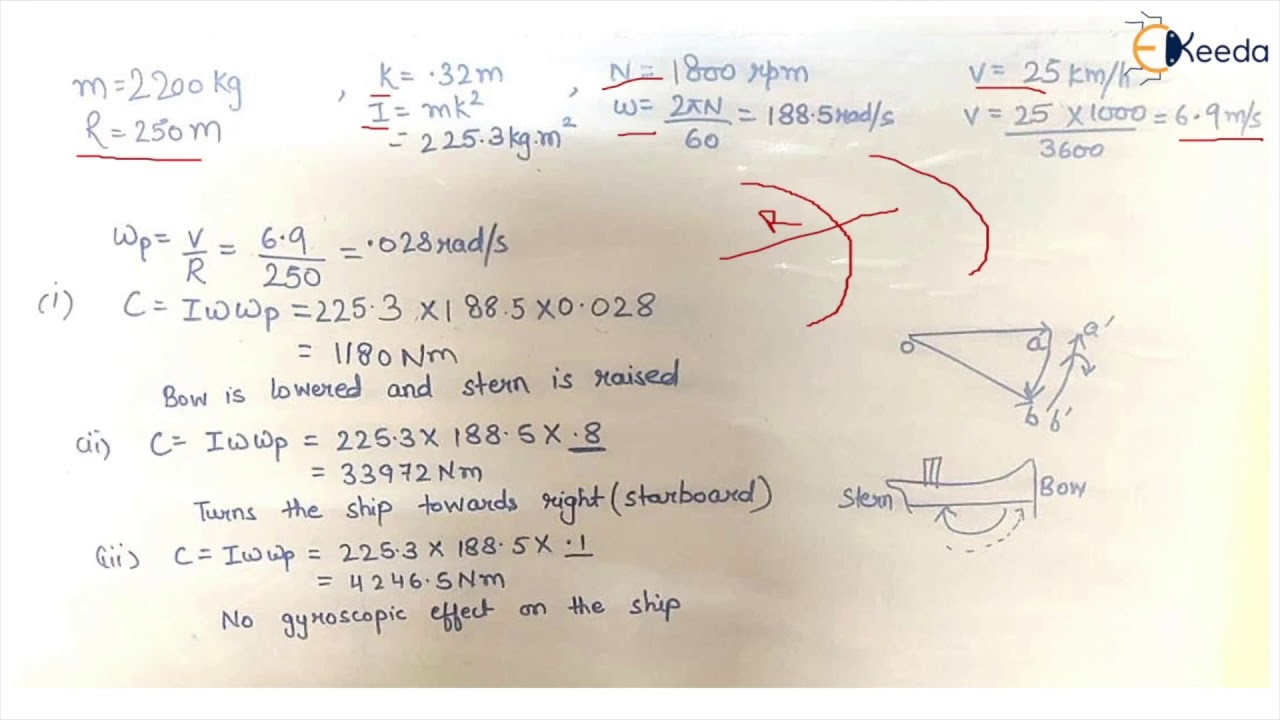 EKeeda
m=2200kg , K= .32m , N= 1800 rpm V= 25 km/h
R=250m I= mk² ω= 2πN/60 = 188.5rad/s V= 25 ×1000/3600 = 6.9 m/s
= 225.3kg.m²
ωp= V/R = 6.9/250 = .028rad/s
(i) C= Iωωp =225.3 ×188.5×0.028
= 1180Nm
Bow is lowered and stern is raised
(ii) C= Iωωp = 225.3× 188.5×.8
= 33972Nm
Turns the ship towards right (starboard)
(iii) C= Iωωp = 225.3 × 188.5× .1
= 4246.5Nm
No gyroscopic effect on the ship
R
o a a'
b b'
Stern Bow